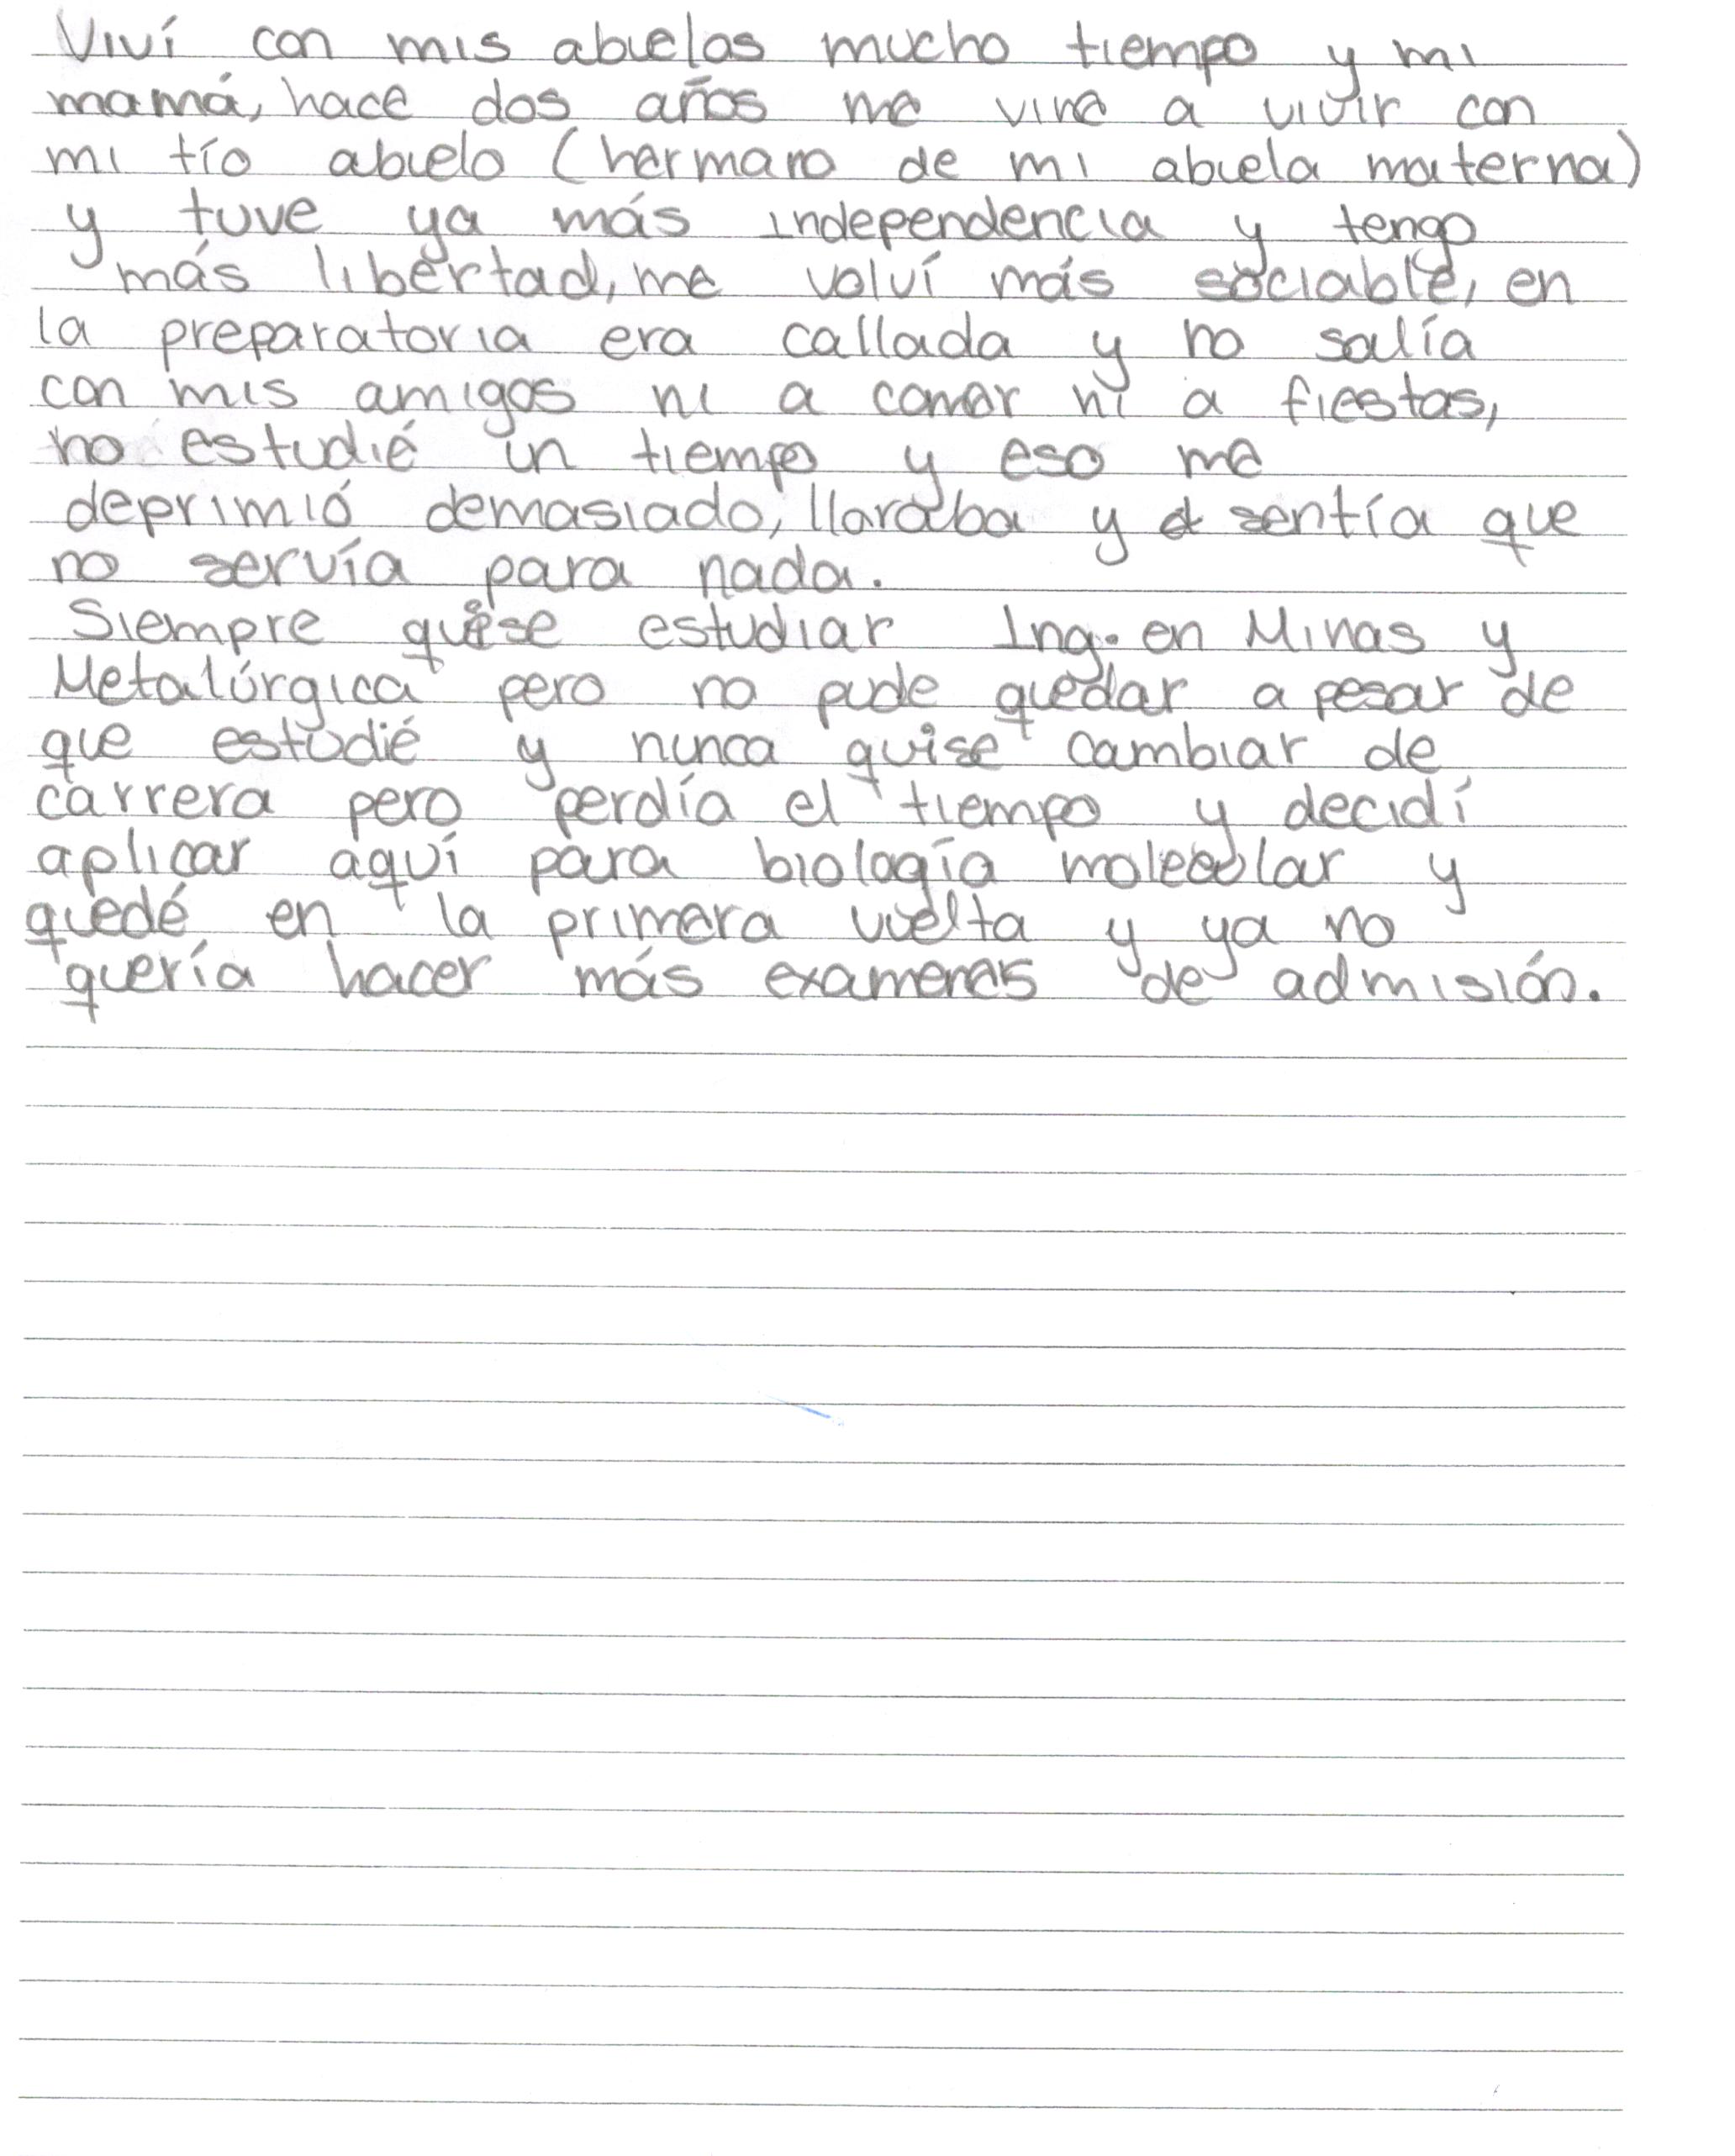 Viví con mis abuelos mucho tiempo y mi
mamá, hace dos años me vine a vivir con
mi tío abuelo (hermano de mi abuela materna)
y tuve ya más independencia y tengo
más libertad, me volví más sociable, en
la preparatoria era callada y no salía
con mis amigos ni a comer ni a fiestas,
no estudié un tiempo y eso me
deprimió demasiado, lloraba y sentía que
no servía para nada.
Siempre quise estudiar Ing. en Minas y
Metalúrgica pero no pude quedar a pesar de
que estudié y nunca quise cambiar de
carrera pero perdía el tiempo y decidí
aplicar aquí para biología molecular y
quedé en la primera vuelta y ya no
quería hacer más examenes de admisión.